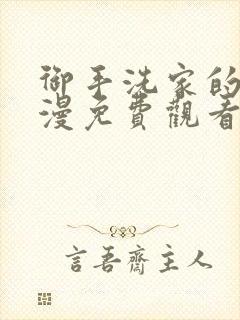 御手洗家的
漫免費觀看
言吾齋主人